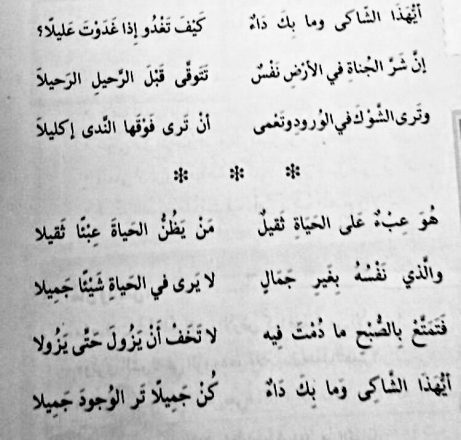 أيُّهَذَا الشَّاكى وما بِكَ دَاءٌ كَيْفَ تَغْدُو إِذا غَدَوْتَ عَليلًا؟
إِنَّ شَرَّ الجُناةِ في الأَرْضِ نَفْسٌ تَتَوقَّى قَبْلَ الرَّحيلِ الرَحيلاَ
وتَرى الشَّوْكَ في الوُرودِ وتَعْمى أنْ تَرى فَوْقَها النَّدى إكليلاَ
* * *
هُوَ عِبْءٌ عَلى الحَيَاةِ ثَقيلٌ مَنْ يَظُنُّ الحَياةَ عِبْئًا ثَقيلا
والَّذي نَفْسُهُ بِغَيرِ جَمَالٍ لا يَرى في الحَياةِ شَيْئًا جَمِيلا
فَتَمَتَّعْ بِالصُّبْحِ ما دُمْتَ فِيه لا تَخَفْ أَنْ يَزُولَ حَتَّى يَزُولا
أَيُّهَذَا الشَّاكِى وَما بِكَ دَاءٌ كُنْ جَمِيلًا تَر الوُجودَ جَمِيلا